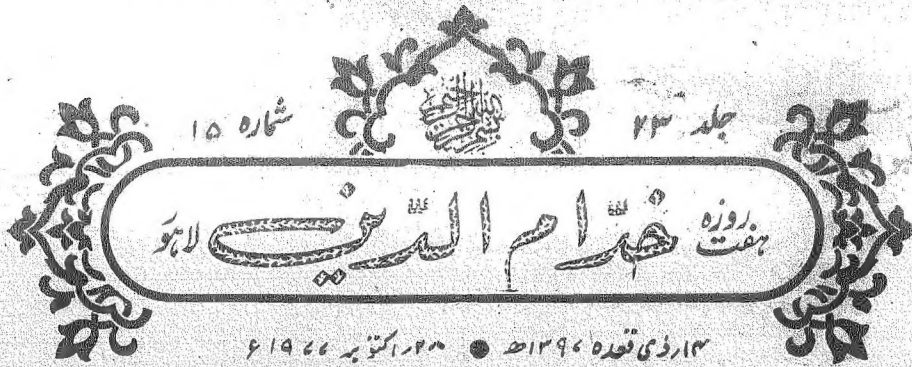 بسم اللہ الرحمن الرحیم
جلد ۲۳ شمارہ ۱۵
ہفت روزہ خدّام الدّین لاہور
۱۴؍ذی قعدہ ۱۳۹۷ھ ● ۲۸؍اکتوبر ۱۹۷۷ء